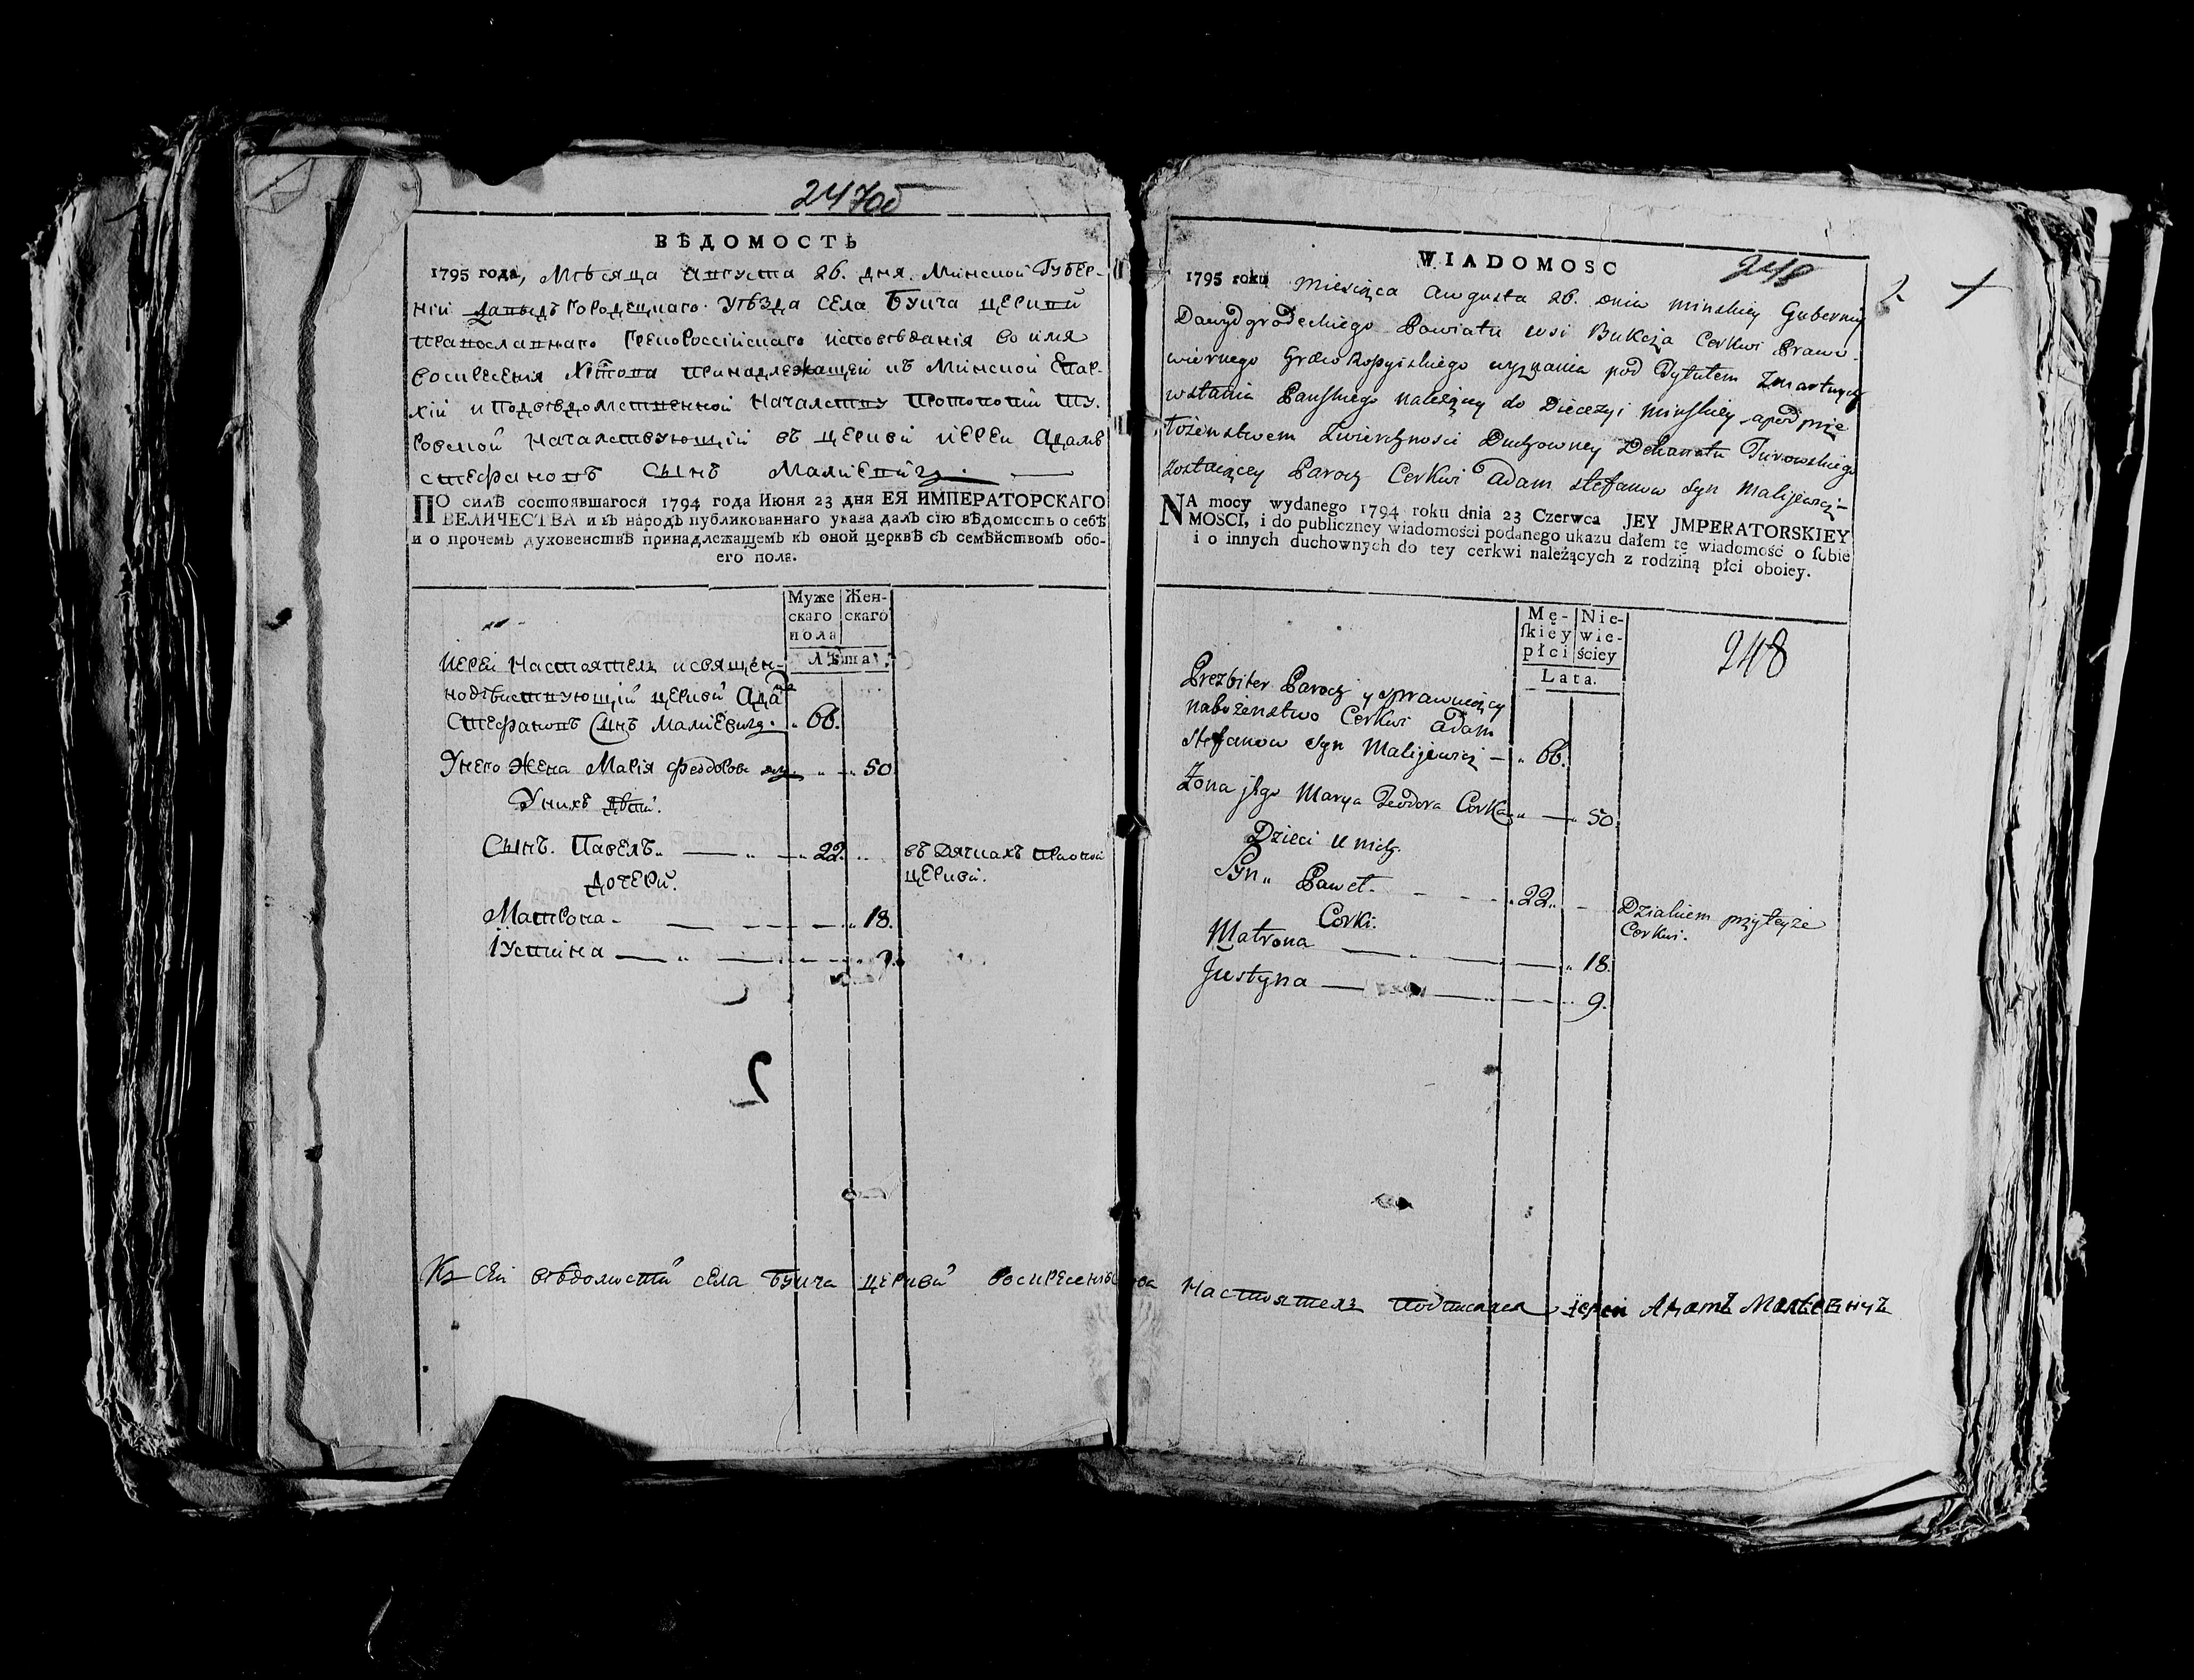 247об
ВѢДОМОСТЬ
1795 года, Мѣсяца Августа 26. дня. Минской Губер-
ніи Давыдъ Городецкаго Уѣзда села Буйча церкви
православнаго Грекороссійскаго исповѣданія во имя
Воскресенія Хрстова принадлежащей къ Минской Епар-
хіи и подвѣдомственной началству протопопіи Ту-
ровской началствующій въ церкви іерей Адамъ
Стефановъ сынъ Маліевичъ. —
ПО силѣ состоявшагося 1794 года Июня 23 дня ЕЯ ИМПЕРАТОРСКАГО
ВЕЛИЧЕСТВА и въ народъ публикованнаго указа далъ сію вѣдомость о себѣ
и о прочемъ духовенствѣ принадлежащемъ къ оной церквѣ съ семѣйствомъ обо-
его пола.
Муже
скаго
пола
Жен-
скаго
Лѣта
Іерей Настоятель и священ-
нодѣйствующій церкви Адамъ
Стефановъ Сынъ Маліевичъ. 66.
У него Жена Марія Феодорова 50
У нихъ дѣти.
Сынъ. Павелъ 22. въ дячкахъ при оной
церкви.
Дочери.
Матрона — 18.
Іустина — 9.
2
WIADOMOSC
248
2
1795 roku Miesiąca Augusta 26. dnia Minskiey Gubernii
Dawydgrodeckiego Powiatu wsi Bukcza Cerkwi Prawo-
wiernego Greko Rossyiskiego wyznania pod Tytułem Zmartwych
wstania Panskiego należący do Diecezyi Minskiey a pod prze
łożenstwem Zwierzchnosci Duchowney Dekanatu Turowskiego
zostaiącey Paroch Cerkwi Adam Stefanow Syn Malijewicz —
NA mocy wydanego 1794 roku dnia 23 Czerwca JEY JMPERATORSKIEY
MOSCI, i do publiczney wiadomości podanego ukazu dałem tę wiadomość o sobie
i o innych duchownych do tey cerkwi należących z rodziną płci oboiey.
Mę-
skiey
płci
Nie-
wie-
ściey
Lata.
248
Prezbiter Paroch y sprawuiący
nabożenstwo Cerkwi Adam
Stefanow Syn Malijewicz — 66.
Zona jego Marya Teodora Corka — 50
Dzieci u nich.
Syn Paweł - 22 Dziakiem przy teyże
Cerkwi.
Corki.
Matrona — 18.
Justyna — 9.
Къ сей вѣдомости села Буйча церкви воскресенія Настоятель подписался іерей Адамъ Малѣевичъ